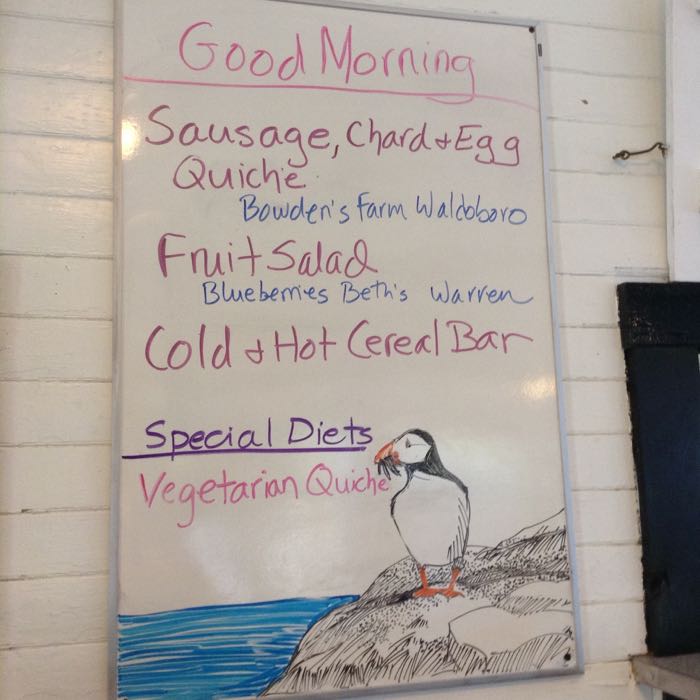 Good Morning
Sausage, Chard + Egg
Quiche
Bowden's Farm Waldoboro
Fruit Salad
Blueberries Beth's Warren
Cold + Hot Cereal Bar
Special Diets
Vegetarian Quiche